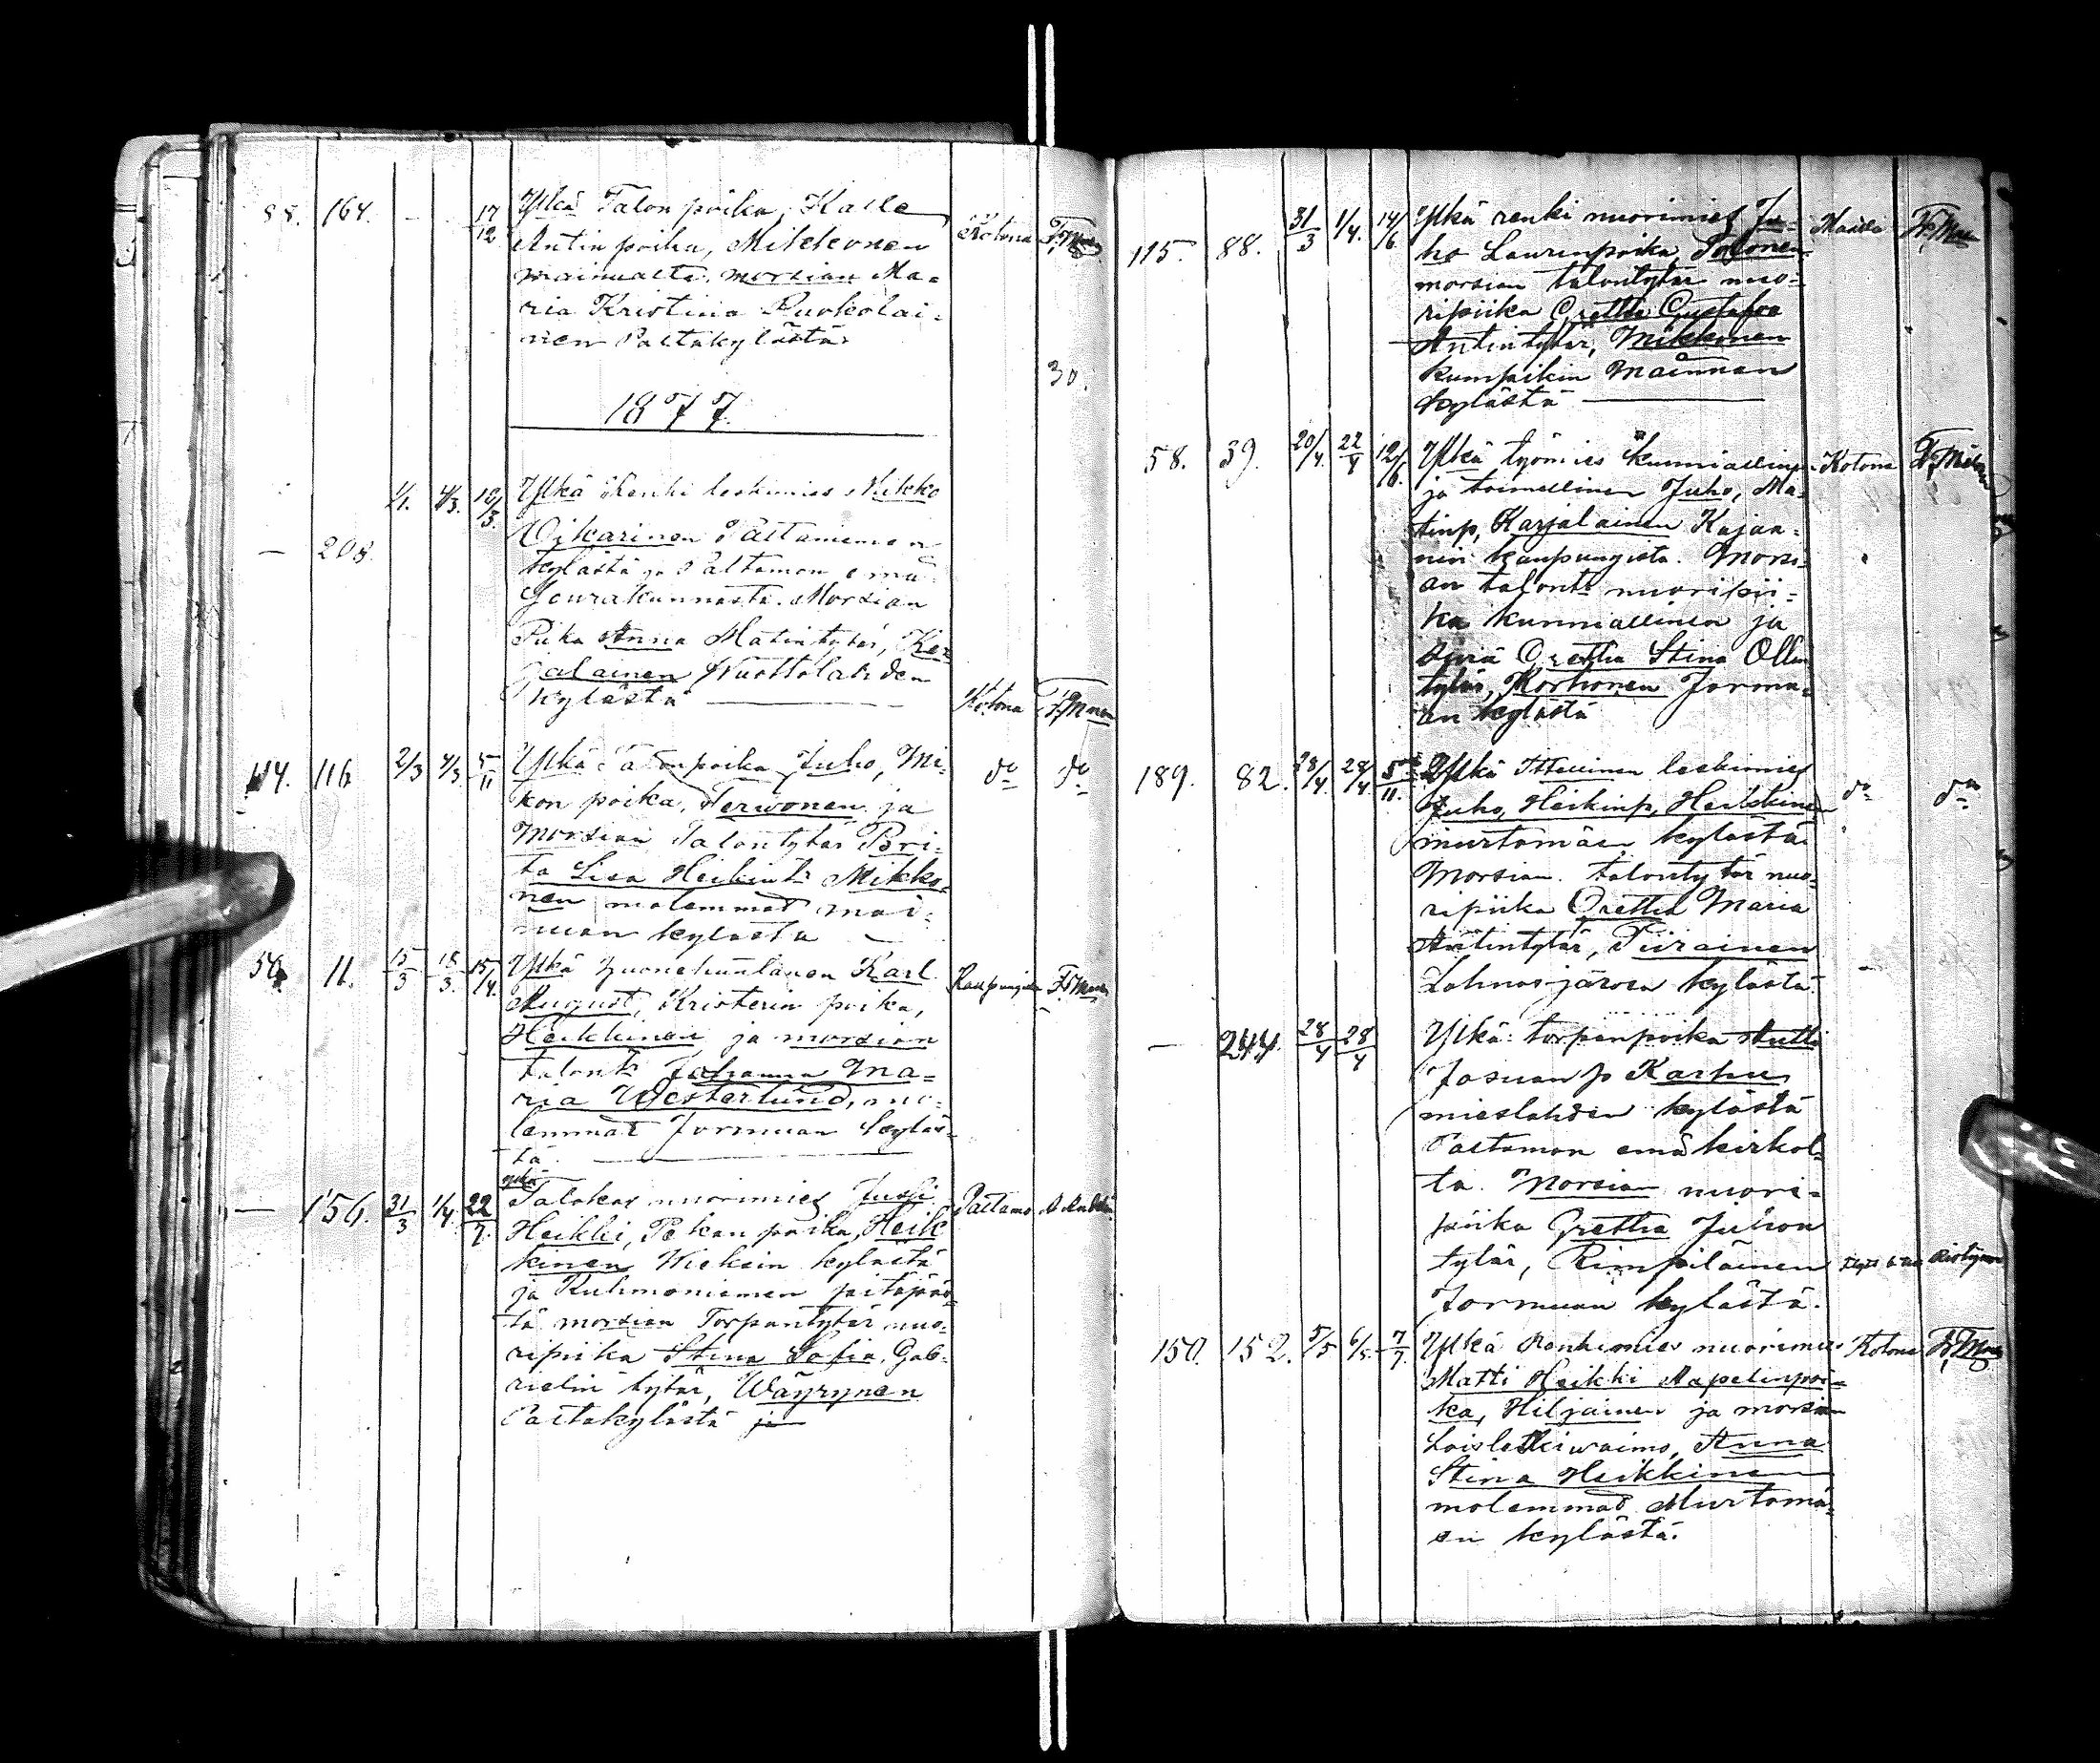 88. 164. - - 17/12 Ylkä Talon poika, Kalle Kotona
Antin poika, Mikkonen
mainualta. morsian Ma=
ria Kristina Puokolai=
nen Paltakylästä
30.
1877.
1/1. 4/3. 18/3. Ylkä Renki leskimies Mikko
— 208. Oikarinen Paltaniemen
kylästä ja Paltamon emä
seurakunnasta. Morsian
Piika Anna Matintytär, Kar
jalainen Wuottolahden
kylästä — Kotona
114. 116 2/3 4/3 5/11 Ylkä Talonpoika Juho, Mi= do do
kon poika, Terwonen ja
Morsian Talontytär Bri=
ta Lisa Heikint: Mikko=
nen molemmat mai=
nuan kylästä —
11. 15/3 18/3. 15/4. Ylkä huonehuulainen Karl
August, Kristerin poika,
Heikkinen ja morsian
talont: Johanna Ma=
ria Westerlund, mo=
lemmat Jormuan kyläs=
tä. —
ylkä
— 156. 31/3 1/4. 22/7. Talokas nuorimies Jussi Paltamo
Heikki, Pekan poika, Heik
kinen Wieksin kylästä
ja Kuhmoniemen pitäjäs=
tä morsian Torpantytär nuo=
ripiika Stina Sofia, Gab=
rielin tytär, Wäyrynen
Paltakylästä ja
115. 88. 31/3 1/4. 14/6. Ylkä renki nuorimies Ju=
ho Laurinpoika, Tolonen
morsian talontytär nuo=
ripiika Gretta Gustafva
Antintytär, Mikkonen
kumpikin Mainuan
kylästä —
58. 39. 20/4. 22/4 12/6. Ylkä työmies kunniallinen Kotona
ja toimellinen Juho, Ma=
tinp, Karjalainen Kajaa=
nin kaupungista. Morsi=
an talont: nuoripii=
ka kunniallinen ja
siviä Gretta Stina Ollin
tytär, Korhonen Jormu=
an kylästä
189. 82. 28/4. 28/4. 5/11. Ylkä Itellinen leskimies do do
Juho, Heikinp, Heikkinen
murtomäen kylästä
Morsian. talontytär nuo=
ripiika Gretta Maria
Antintytär, Piirainen
Lahnasjärven kylästä.
— 244. 28/4 28/4 Ylkä: torpanpoika Antti
Josuan p Karhu
mieslahden kylästä
Paltamon emäkirkol=
ta. Morsian nuori=
piika Gretta Juhon
tytär, Rimpiläinen
Jormuan kylästä.
150. 152. 5/5 6/5. 7/7. Ylkä Renkimies nuorimies Kotona
Matti Heikki Aapelinpoi=
ka, Hiljainen ja morsian
Loisleskiwaimo, Anna
Stina Heikkinen
molemmad Murtomä=
en kylästä.